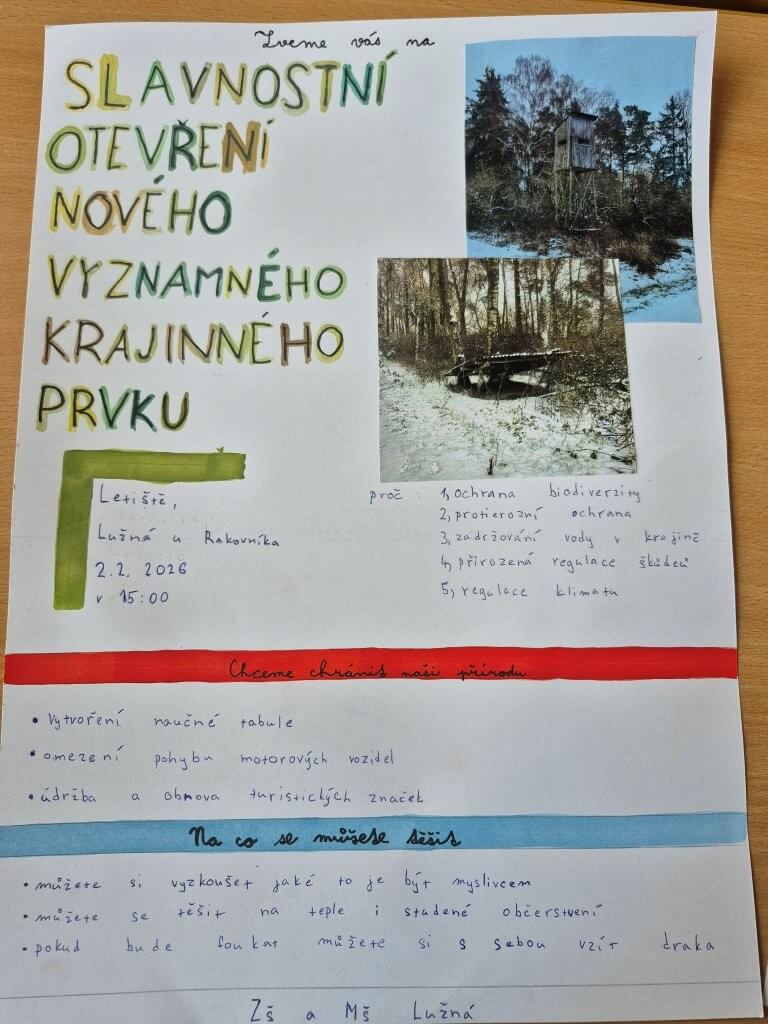 Zveme vás na
SLAVNOSTNÍ
OTEVŘENÍ
NOVÉHO
VÝZNAMNÉHO
KRAJINNÉHO
PRVKU
Letiště,
Lužná u Rakovníka
2.2. 2026
v 15:00
proč 1, ochrana biodiverzity
2, protierozní ochrana
3, zadržování vody v krajině
4, přirozená regulace škůdců
5, regulace klimatu
Chceme chránit naši přírodu
• vytvoření naučné tabule
• omezení pohybu motorových vozidel
• údržba a obnova turistických značek
Na co se můžete těšit
• můžete si vyzkoušet jaké to je být myslivcem
• můžete se těšit na teple i studené občerstvení
• pokud bude foukat můžete si s sebou vzít draka
Zš a Mš Lužná